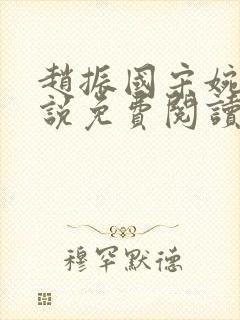 趙振國宋婉
說免費閱讀
穆罕默德